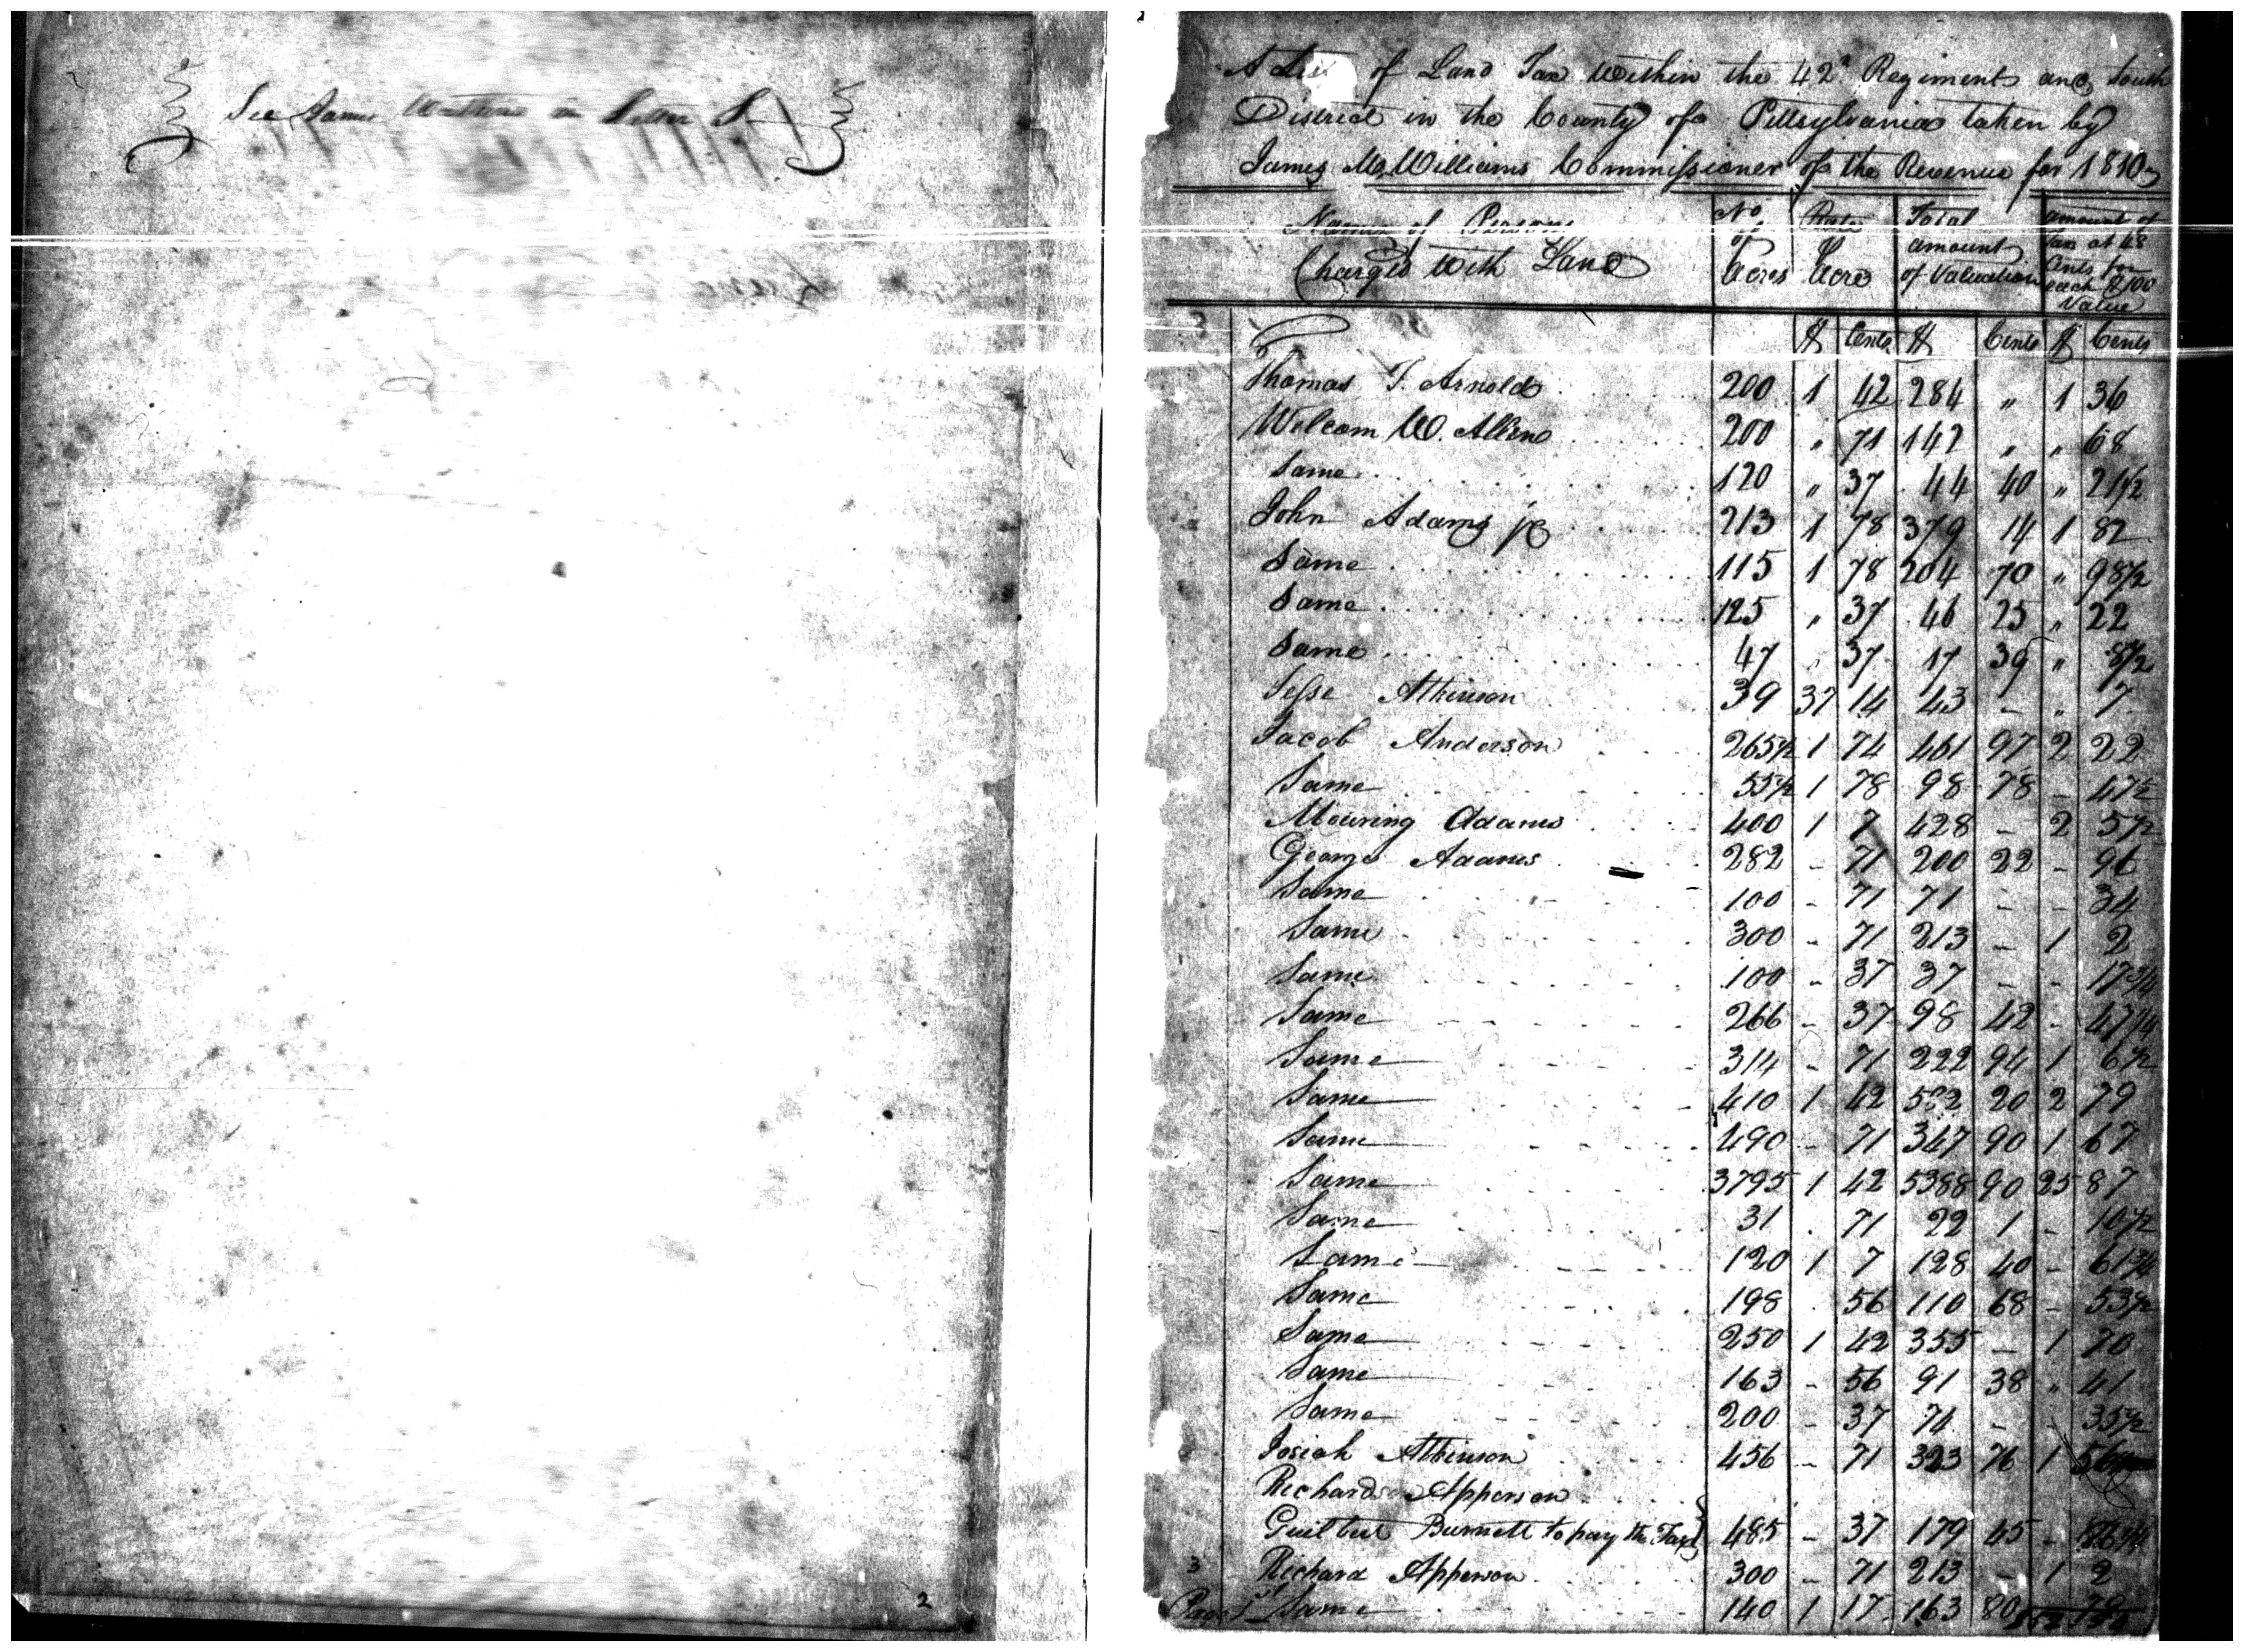 See James Watkins in Letter S
2
A List of Land Tax Within the 42d Regiment and South
District in the County of Pittsylvania taken by
James McWilliams Commissioner of the Revenue for 1810
Names of Persons Charged With Land | No of Acres | Rate Acre | Total amount of Valuation | amount of Tax at 48 Cents for each $100 Value
$ Cents $ Cents $ Cents
Thomas T. Arnold 200 1 42 284 " 1 36
Welcom W. Allen 200 " 71 142 " " 68
Same 120 " 37 44 40 " 21 1/2
John Adams jr 213 1 78 379 14 1 82
Same 115 1 78 204 70 " 98 1/2
Same 125 " 37 46 25 " 22
Same 47 " 37 17 39 " 8 1/2
Jesse Atkinson 39 37 14 43 - " 7
Jacob Anderson 265 1/2 1 74 461 97 2 22
Same 55 1/2 1 78 98 78 - 47 1/2
Mourning Adams 400 1 7 428 - 2 5 1/2
George Adams 282 - 71 200 22 - 96
Same 100 - 71 71 - - 34
Same 300 - 71 213 - 1 2
Same 100 - 37 37 - - 17 3/4
Same 266 - 37 98 42 - 47 1/4
Same 314 - 71 222 94 1 6 1/2
Same 410 1 42 582 20 2 79
Same 490 - 71 347 90 1 67
Same 3795 1 42 5388 90 25 87
Same 31 . 71 22 1 - 10 1/2
Same 120 1 7 128 40 - 61 3/4
Same 198 . 56 110 68 - 53 1/2
Same 250 1 42 355 - 1 70
Same 163 - 56 91 38 " 41
Same 200 - 37 74 - - 35 1/2
Josiah Atkinson 456 - 71 323 76 1
Richard Apperson
Guilbert Burnett to pay the Tax 485 - 37 179 45 -
3 Richard Apperson 300 - 71 213 - 1 2
Page 1st Same 140 1 17 163 80